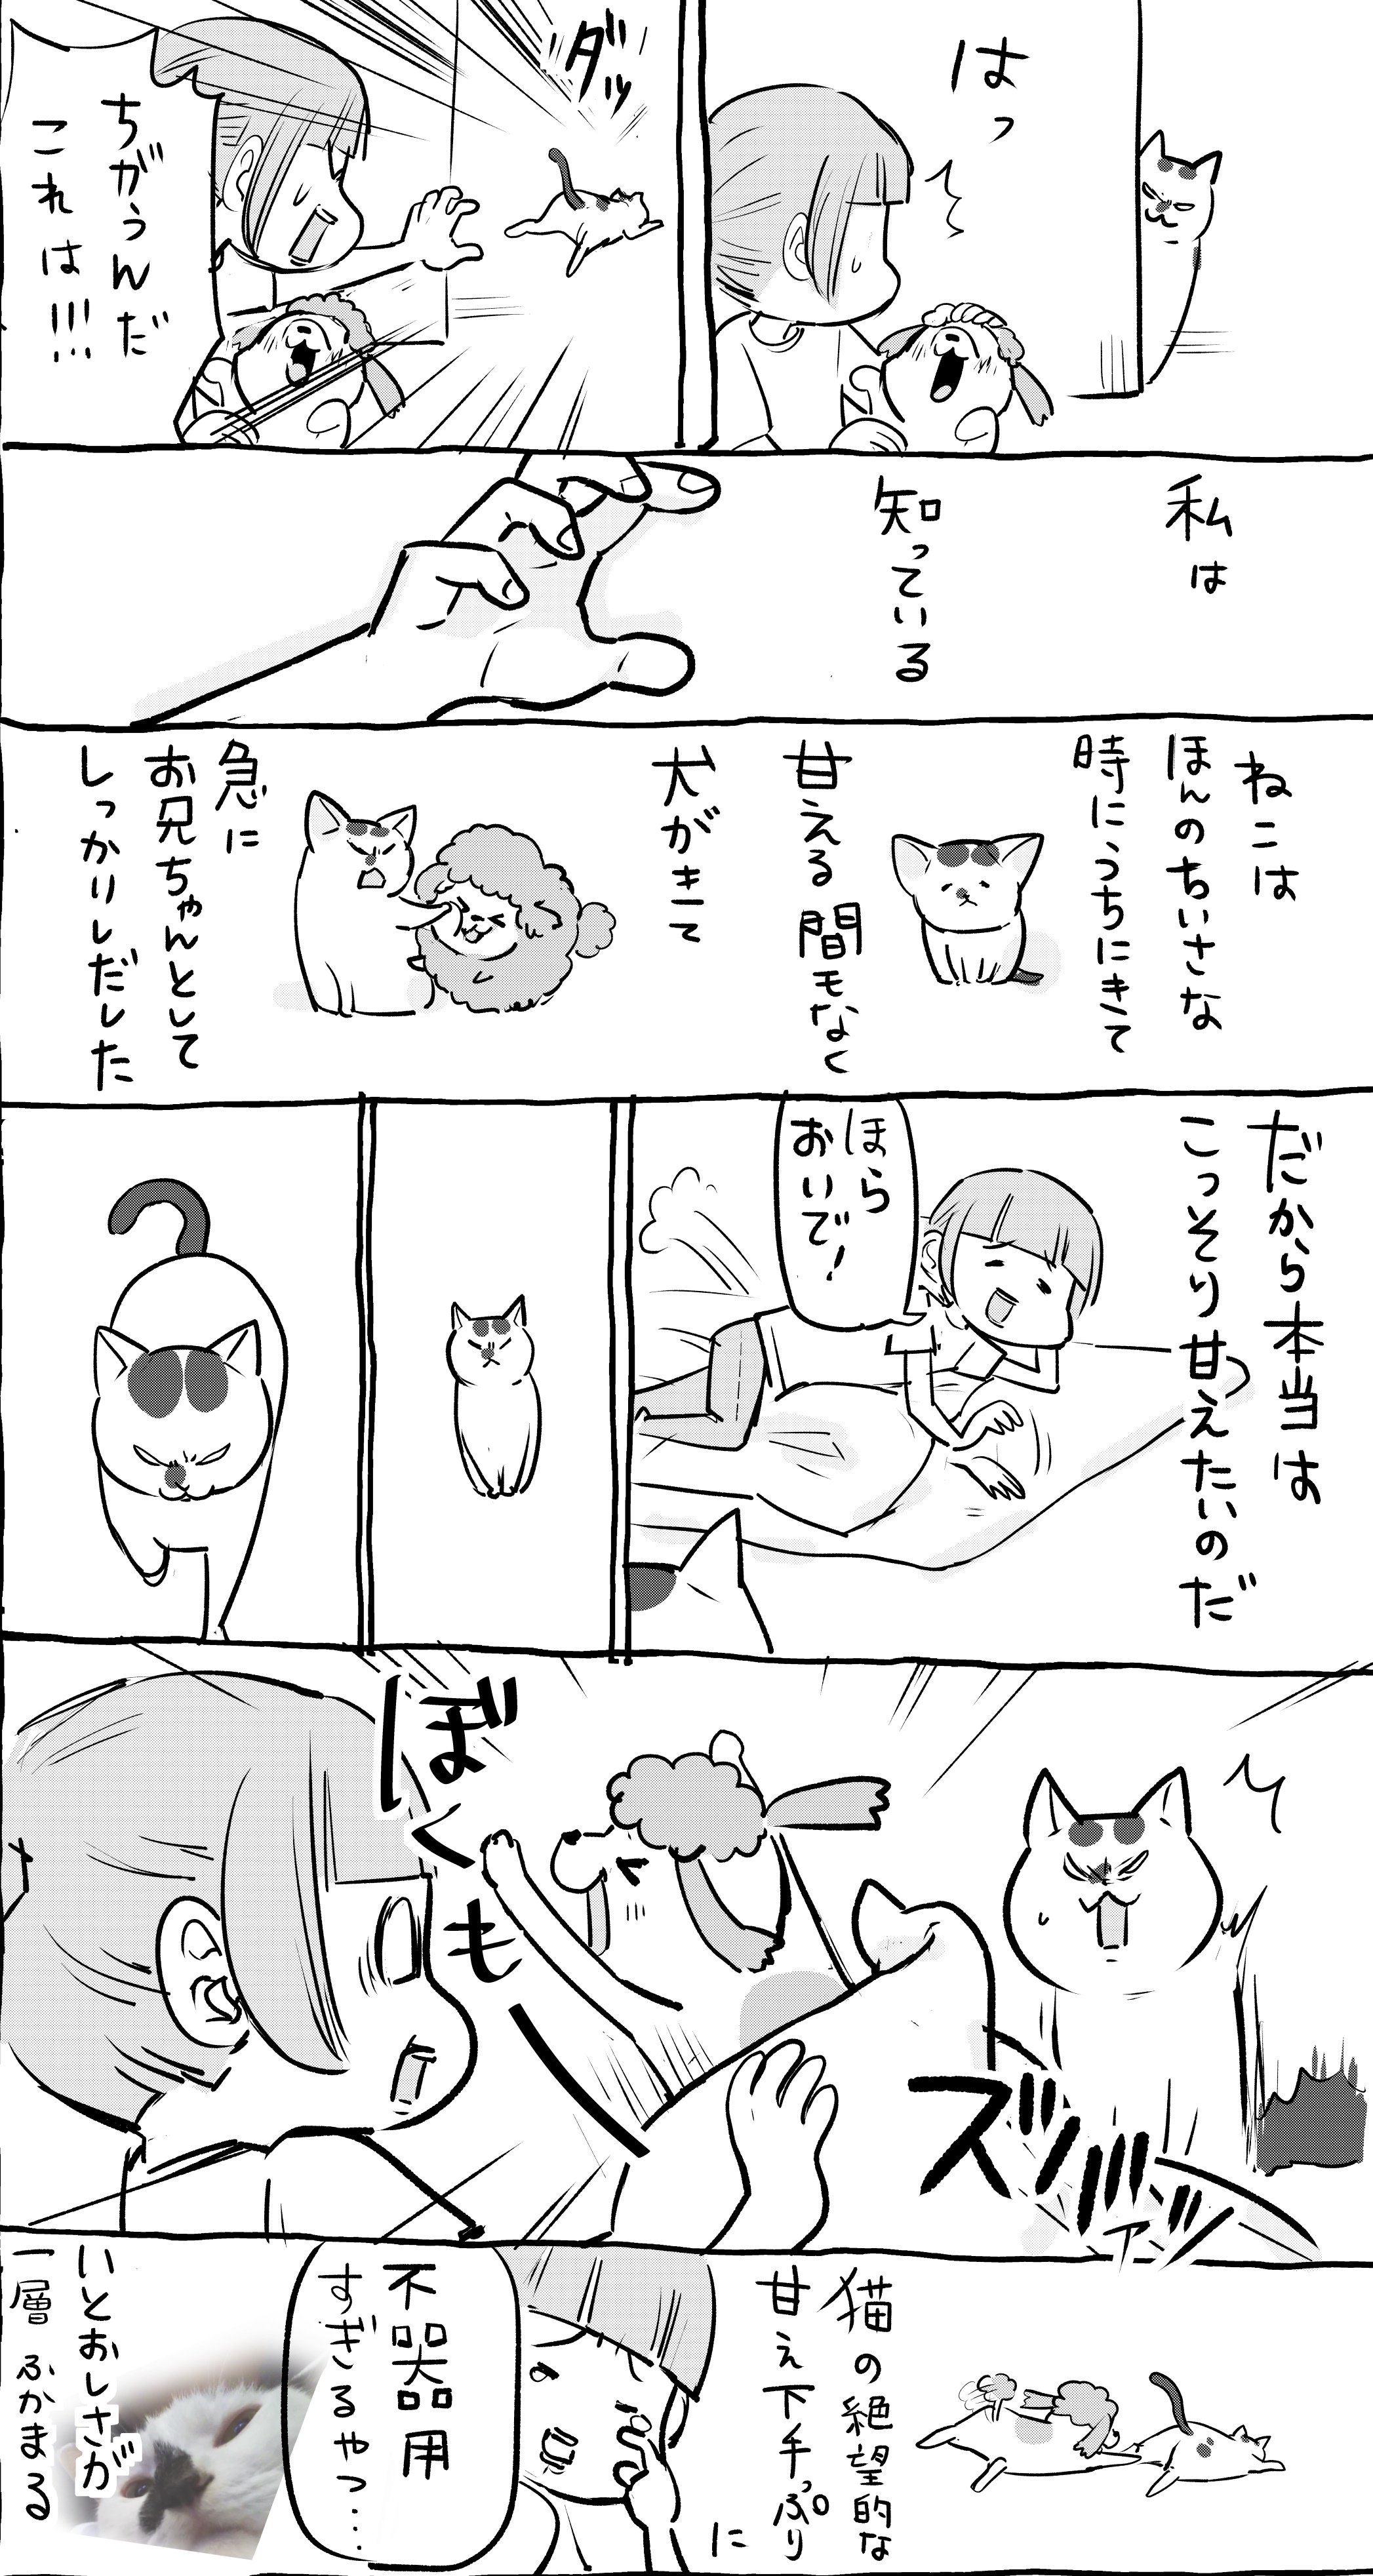 はっ
ダッ
ちがうんだ
これは!!!
私は
知っている
ねこは
ほんのちいさな
時にうちにきて
甘える間もなく
犬がきて
急に
お兄ちゃんとして
しっかりしだした
だから本当は
こっそり甘えたいのだ
ほら
おいで!
ズザァッ
ぼくもー
猫の絶望的な
甘え下手っぷり
に
不器用
すぎるやつ…
いとおしさが
一層ふかまる